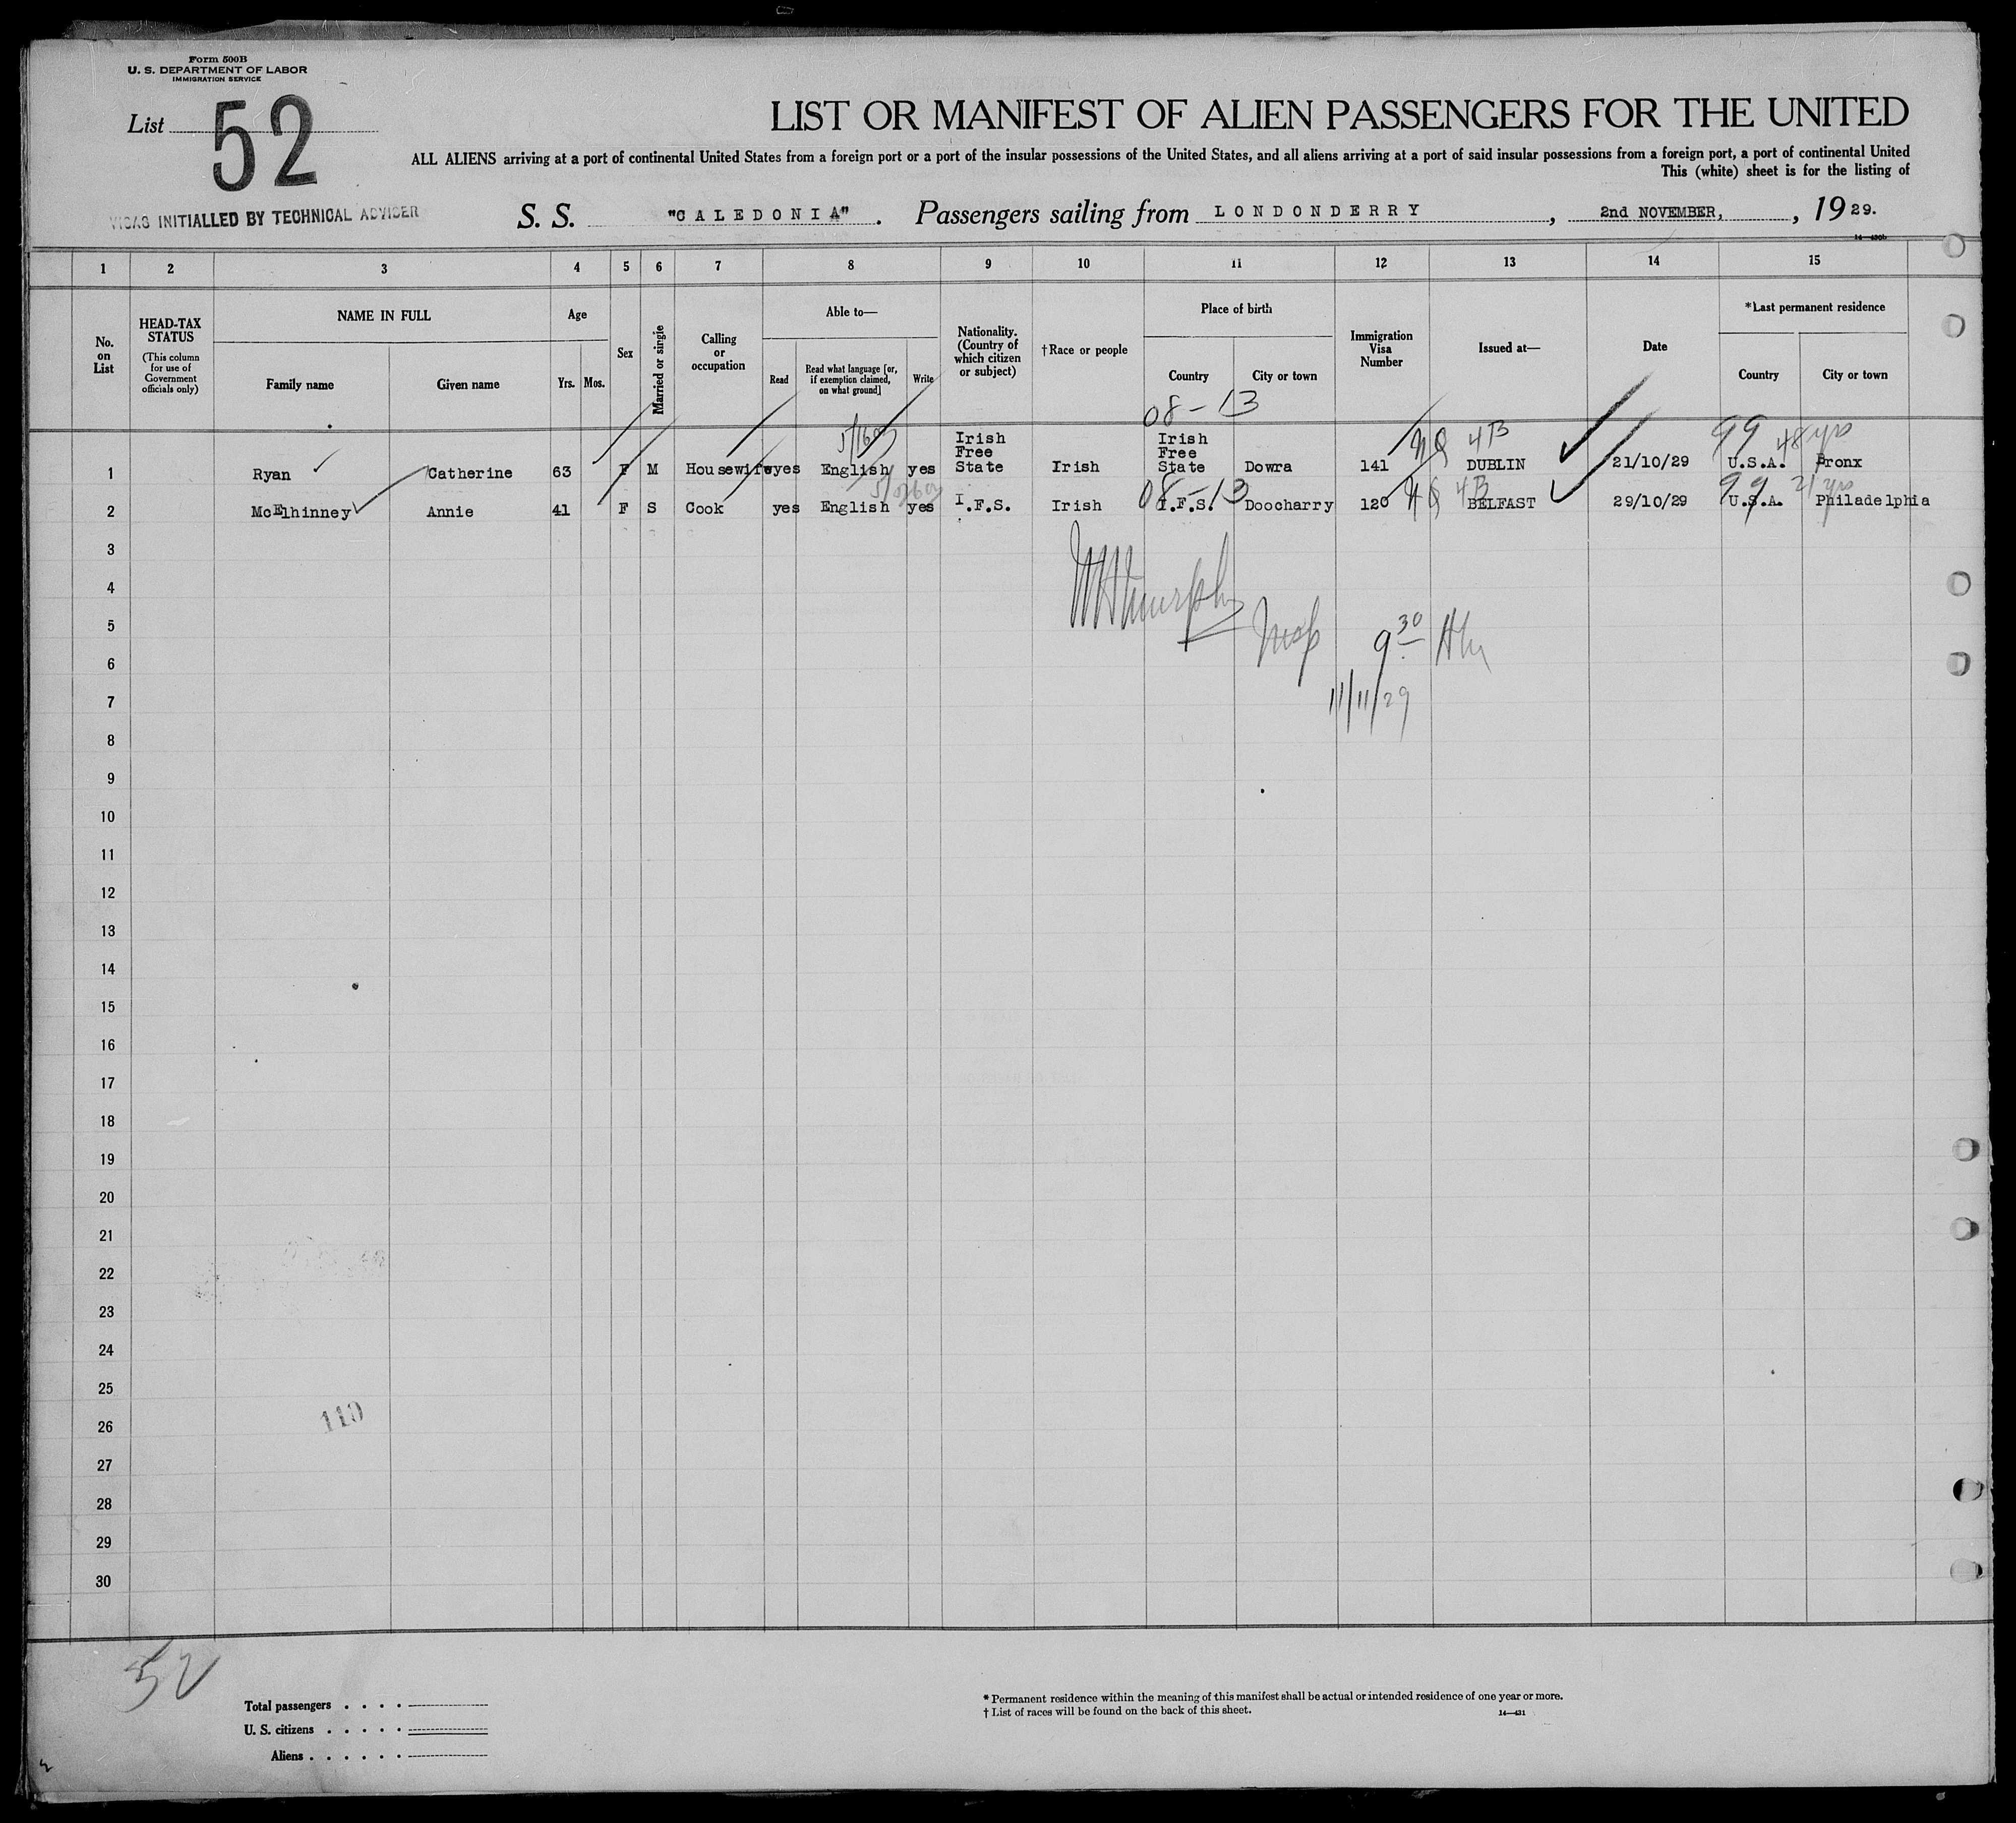 Form 500B
U. S. DEPARTMENT OF LABOR
IMMIGRATION SERVICE
List 52
LIST OR MANIFEST OF ALIEN PASSENGERS FOR THE UNITED
ALL ALIENS arriving at a port of continental United States from a foreign port or a port of the insular possessions of the United States, and all aliens arriving at a port of said insular possessions from a foreign port, a port of continental United
This (white) sheet is for the listing of
VISAS INITIALLED BY TECHNICAL ADVISER
S. S. "CALEDONIA". Passengers sailing from LONDONDERRY, 2nd NOVEMBER, , 1929.
14—430b
1 2 3 4 5 6 7 8 9 10 11 12 13 14 15
No. on List
HEAD-TAX STATUS
(This column for use of Government officials only)
NAME IN FULL
Family name Given name
Age
Yrs. Mos.
Sex
Married or single
Calling or occupation
Able to—
Read
Read what language [or, if exemption claimed, on what ground]
Write
Nationality. (Country of which citizen or subject)
†Race or people
Place of birth
Country City or town
Immigration Visa Number
Issued at—
Date
*Last permanent residence
Country City or town
08-13
1 Ryan Catherine 63 F M Housewife yes English yes Irish Free State Irish Irish Free State Dowra 141 NQ 4B DUBLIN 21/10/29 99 U.S.A. 48 yrs Bronx
08-13
2 McElhinney Annie 41 F S Cook yes English yes I.F.S. Irish I.F.S. Doocharry 120 4B BELFAST 29/10/29 99 U.S.A. 21 yrs Philadelphia
3
4
5
Insp 9 30 AM
6
11/11/29
7
8
9
10
11
12
13
14
15
16
17
18
19
20
21
22
23
24
25
110
26
27
28
29
30
52
Total passengers . . . .
U. S. citizens . . . . .
Aliens . . . . . .
* Permanent residence within the meaning of this manifest shall be actual or intended residence of one year or more.
† List of races will be found on the back of this sheet.
14—431